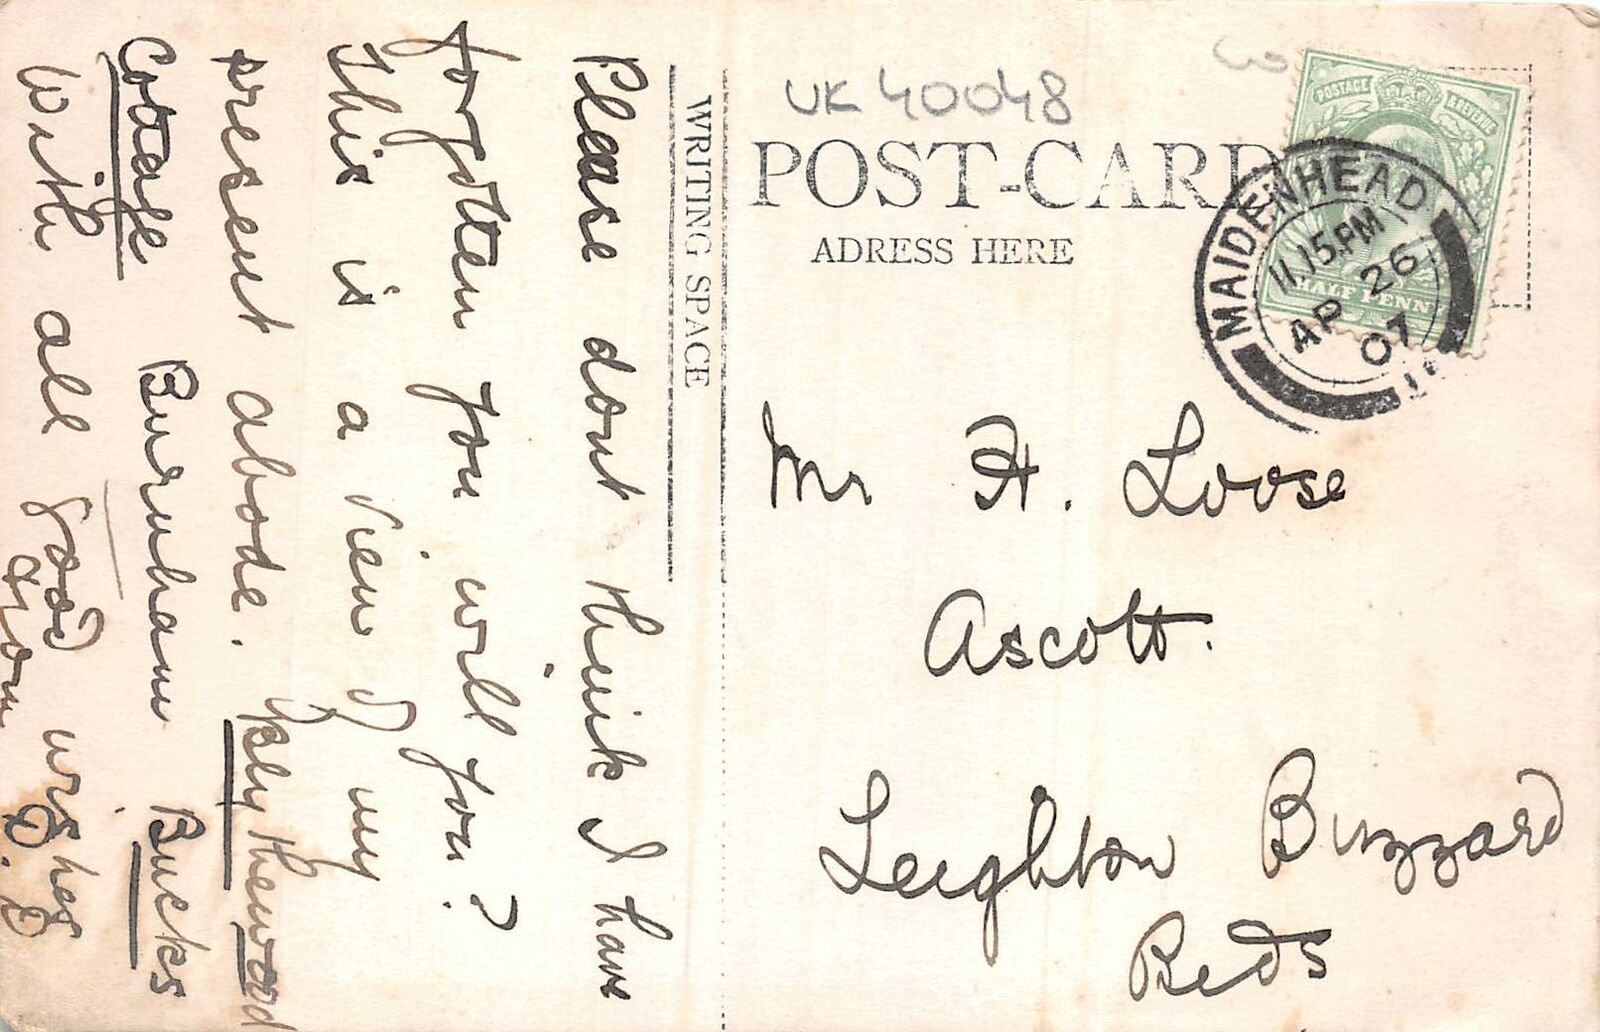 UK 40048
POST-CARD
ADRESS HERE
WRITING SPACE
POSTAGE & REVENUE
HALF PENNY
MAIDENHEAD
11.15 PM
AP 26
07
Mr H. Loose
Ascott.
Leighton Buzzard
Beds
Please dont think I have
forgotten you will you?
This is a view of my
present abode.
Cottage Burnham Bucks
With all good wishes
from